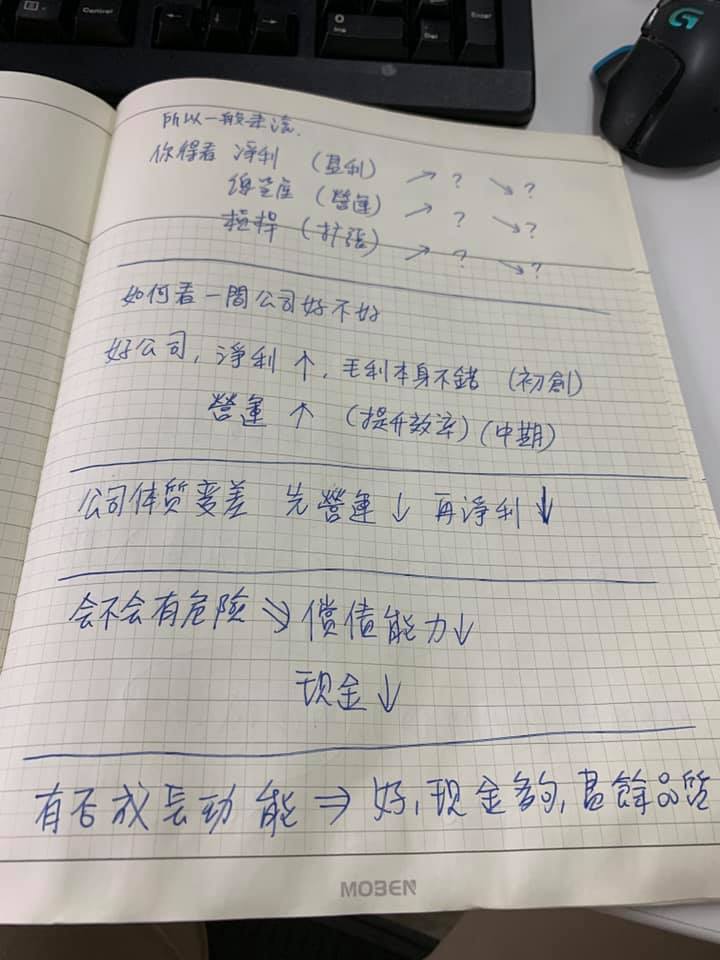 Control
Enter
0
Ins
所以一般來說.
你得看 淨利 (盈利) ↗ ? ↘ ?
總資產 (營運) ↗ ? ↘ ?
槓桿 (扩張) ↗ ? ↘ ?
如何看一間公司好不好
好公司, 淨利 ↑, 毛利本身不錯 (初創)
營運 ↑ (提升效率) (中期)
公司体質变差 先營運 ↓ 再淨利 ↓
会不会有危險 ⇒ 償債能力 ↓
现金 ↓
有否成長动能 ⇒ 好, 现金夠, 盈餘品質
MOBEN